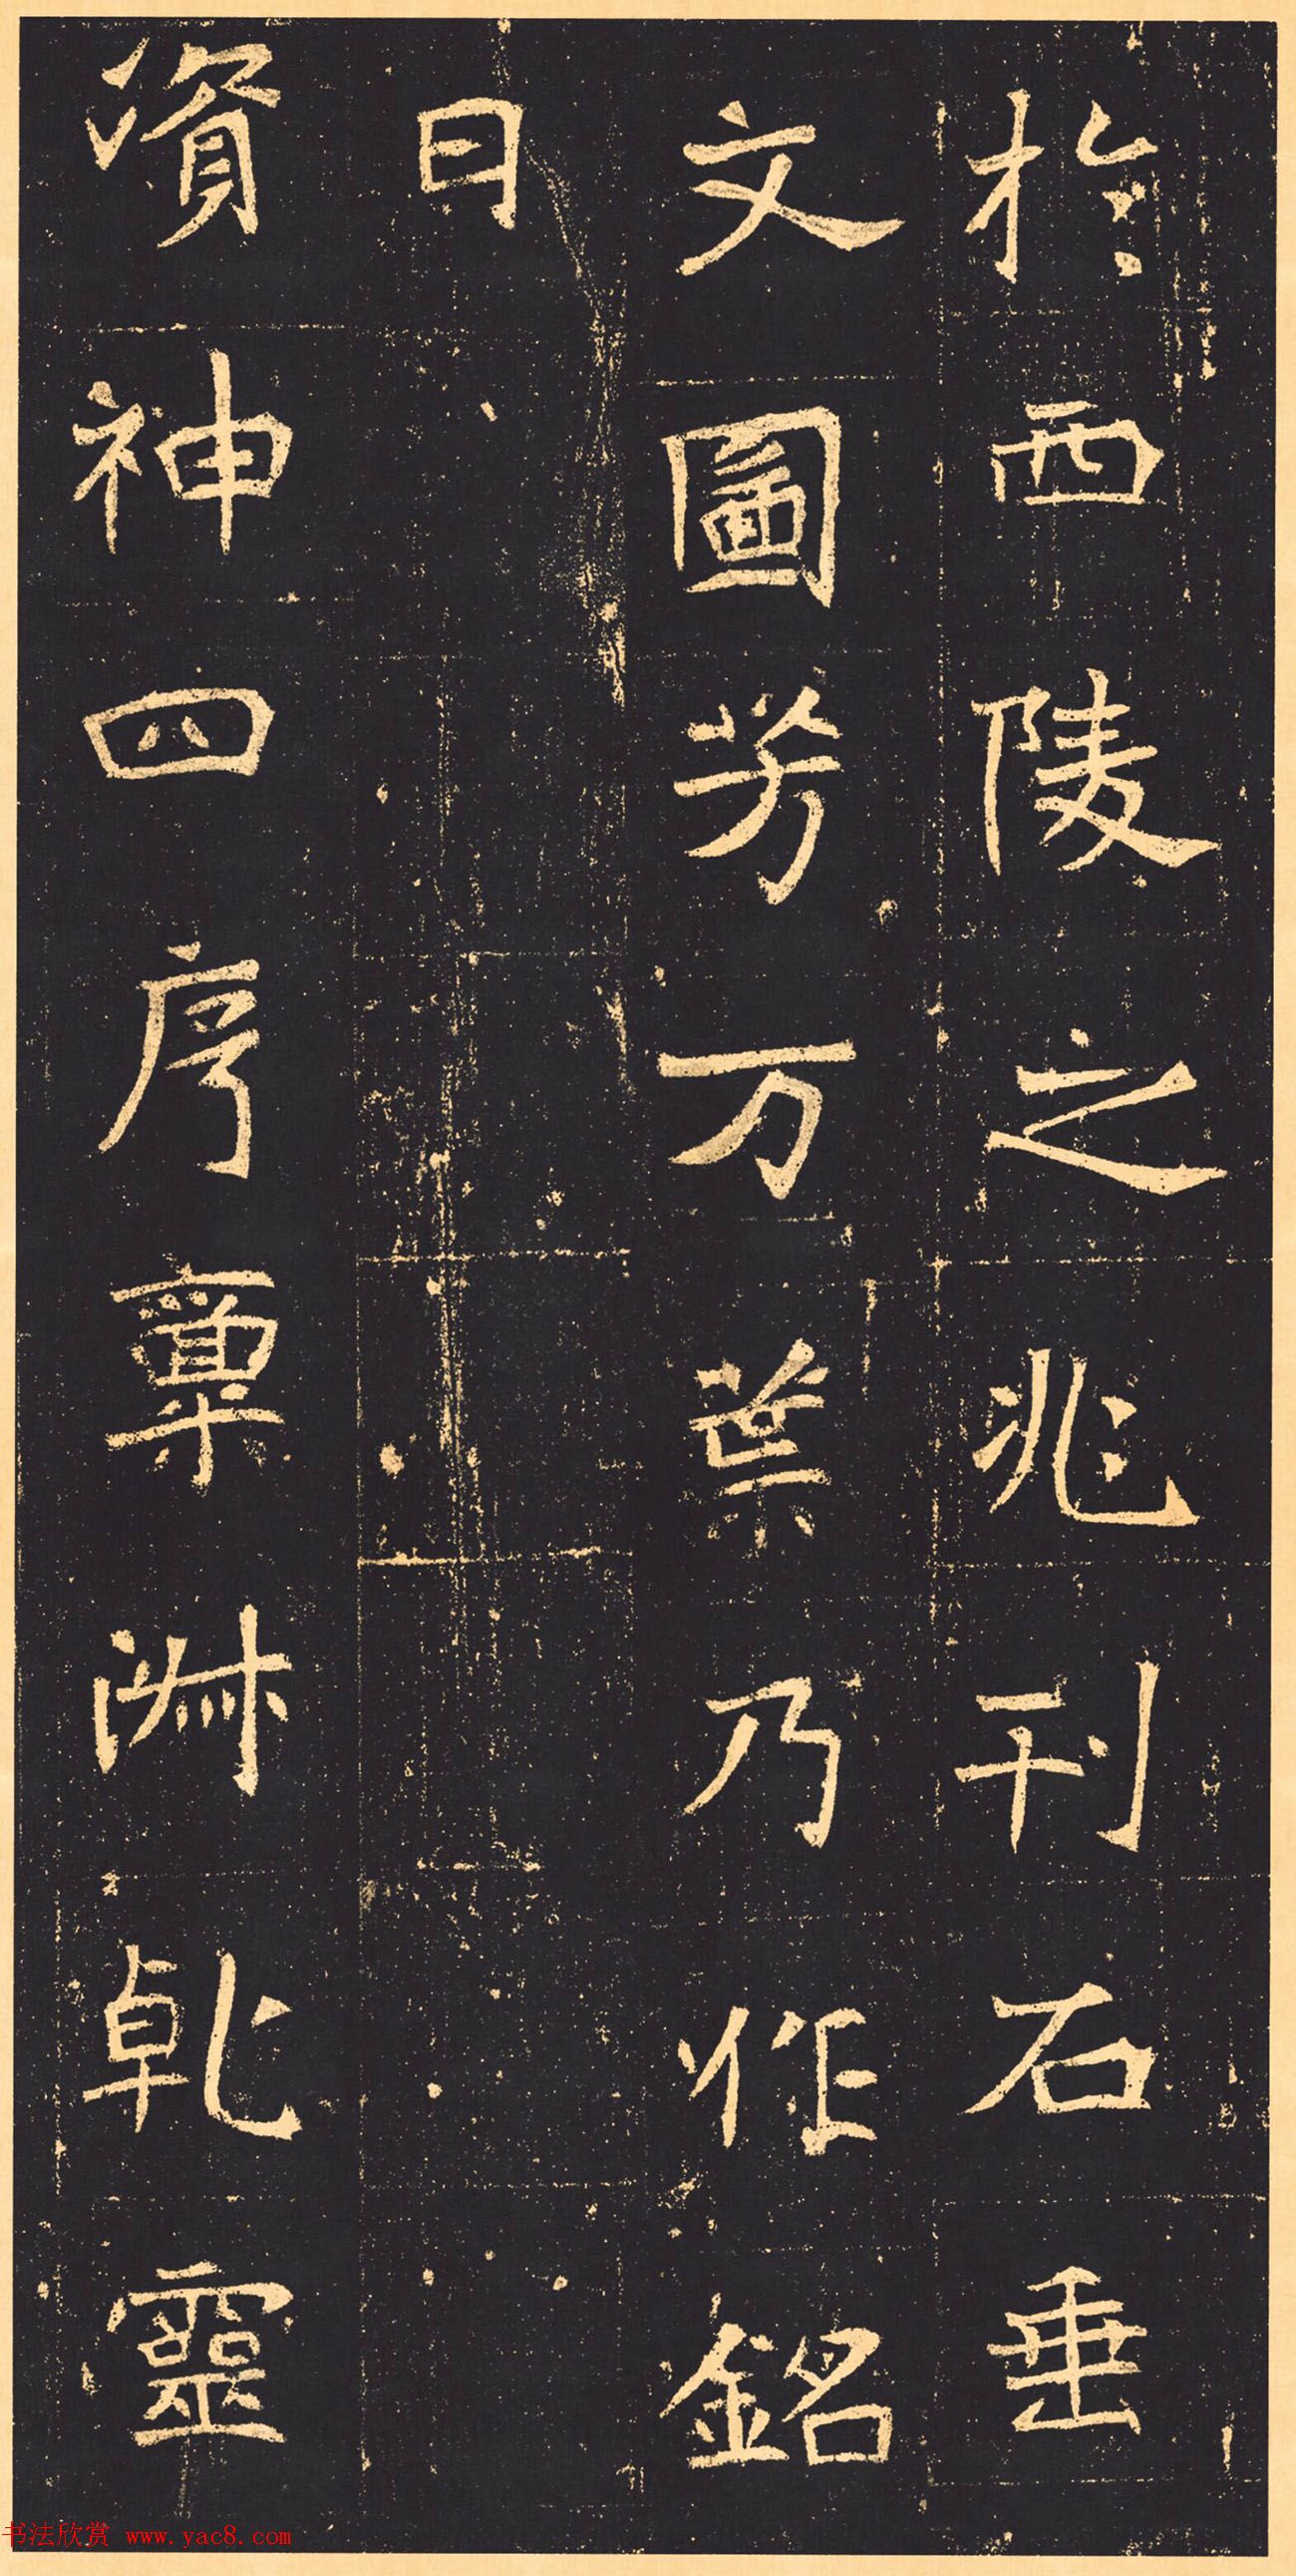 於西陵之兆刊石垂
文圖芳万葉乃作銘
曰
資神四序稟淋乹靈
书法欣赏 www.yac8.com